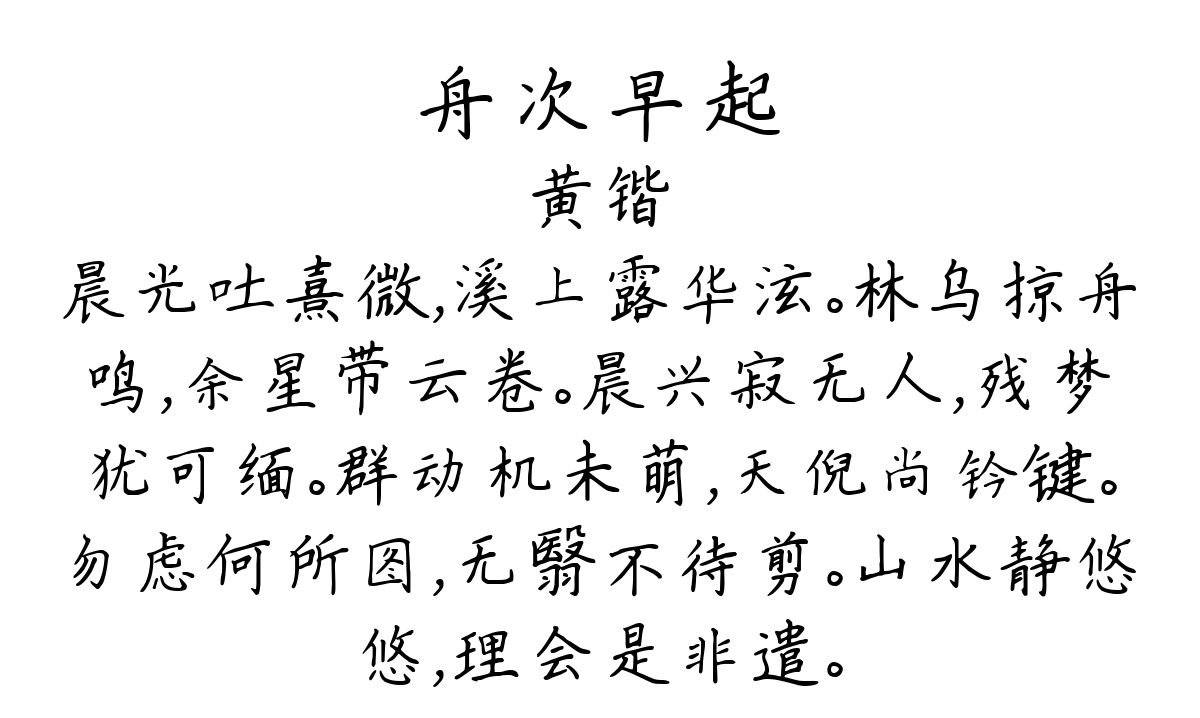 舟次早起
黄锴
晨光吐熹微,溪上露华泫。林乌掠舟
鸣,余星带云卷。晨兴寂无人,残梦
犹可缅。群动机未萌,天倪尚钤键。
勿虑何所图,无翳不待剪。山水静悠
悠,理会是非遣。